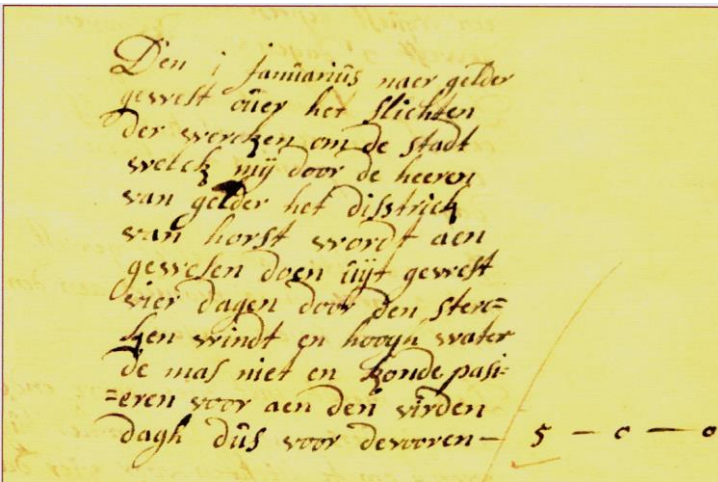 Den j Januarius naer gelder
gewest over het slichten
der wercken om de stadt
welck mij door de heeren
van gelder het disstrick
van horst wordt aen
gewesen doen uijt gewest
vier dagen door den sterc=
ken windt en hoogh water
de mas niet en konde pasi=
=eren voor aen den virden
dagh dus voor devooren — 5 — 0 — 0